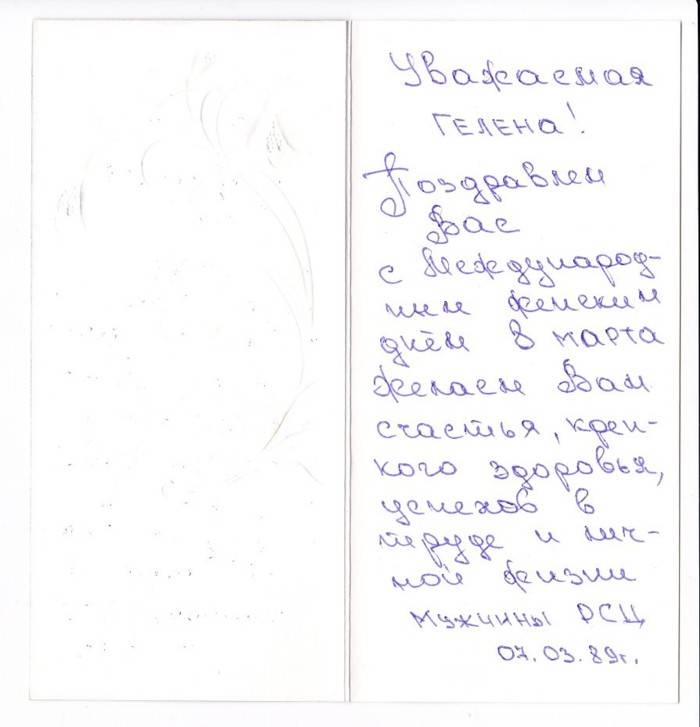 Уважаемая
ГЕЛЕНА!
Поздравлем
Вас
с Международ-
ным женским
днём 8 марта
Желаем Вам
счастья, креп-
кого здоровья,
успехов в
труде и лич-
ной жизни
Мужчины РСЦ
07.03.89г.